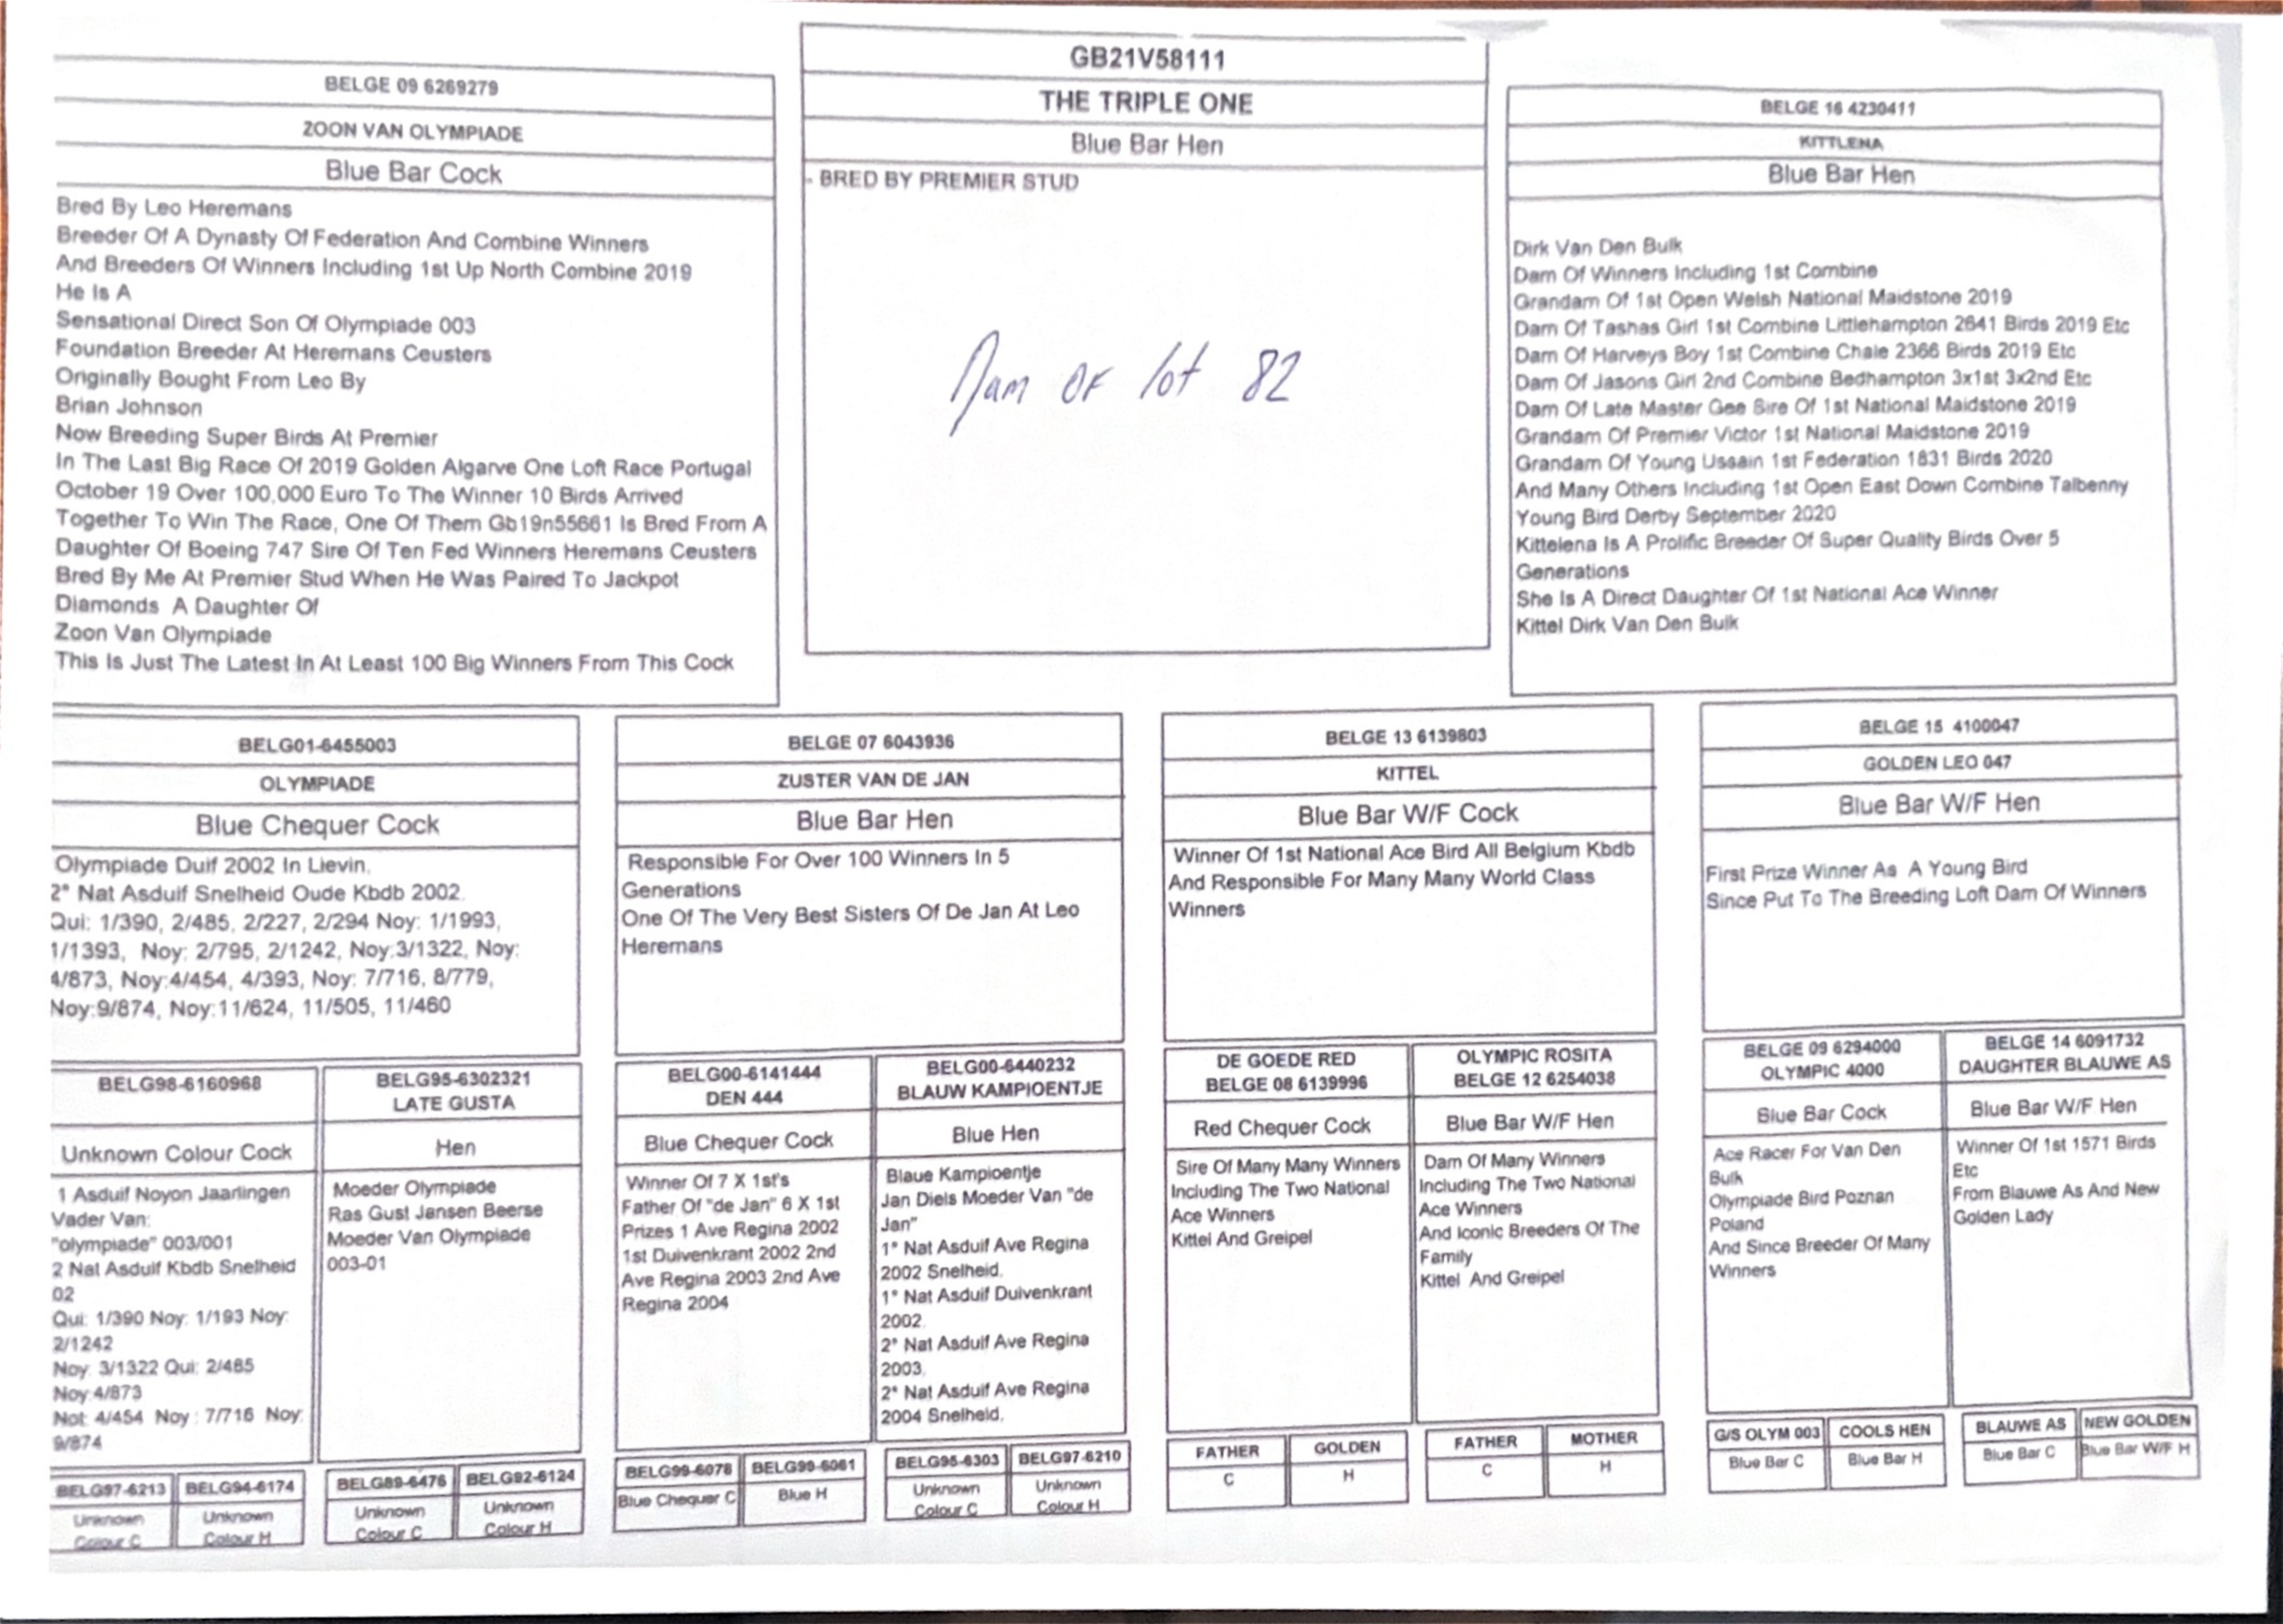 BELGE 09 6269279
ZOON VAN OLYMPIADE
Blue Bar Cock
Bred By Leo Heremans
Breeder Of A Dynasty Of Federation And Combine Winners
And Breeders Of Winners Including 1st Up North Combine 2019
He Is A
Sensational Direct Son Of Olympiade 003
Foundation Breeder At Heremans Ceusters
Originally Bought From Leo By
Brian Johnson
Now Breeding Super Birds At Premier
In The Last Big Race Of 2019 Golden Algarve One Loft Race Portugal
October 19 Over 100,000 Euro To The Winner 10 Birds Arrived
Together To Win The Race, One Of Them Gb19n55661 Is Bred From A
Daughter Of Boeing 747 Sire Of Ten Fed Winners Heremans Ceusters
Bred By Me At Premier Stud When He Was Paired To Jackpot
Diamonds A Daughter Of
Zoon Van Olympiade
This Is Just The Latest In At Least 100 Big Winners From This Cock
GB21V58111
THE TRIPLE ONE
Blue Bar Hen
- BRED BY PREMIER STUD
Dam OF lot 82
BELGE 16 4230411
KITTLENA
Blue Bar Hen
Dirk Van Den Bulk
Dam Of Winners Including 1st Combine
Grandam Of 1st Open Welsh National Maidstone 2019
Dam Of Tashas Girl 1st Combine Littlehampton 2641 Birds 2019 Etc
Dam Of Harveys Boy 1st Combine Chale 2366 Birds 2019 Etc
Dam Of Jasons Girl 2nd Combine Bedhampton 3x1st 3x2nd Etc
Dam Of Late Master Gee Sire Of 1st National Maidstone 2019
Grandam Of Premier Victor 1st National Maidstone 2019
Grandam Of Young Ussain 1st Federation 1831 Birds 2020
And Many Others Including 1st Open East Down Combine Talbenny
Young Bird Derby September 2020
Kittelena Is A Prolific Breeder Of Super Quality Birds Over 5
Generations
She Is A Direct Daughter Of 1st National Ace Winner
Kittel Dirk Van Den Bulk
BELG01-6455003
OLYMPIADE
Blue Chequer Cock
Olympiade Duif 2002 In Lievin.
2° Nat Asduif Snelheid Oude Kbdb 2002.
Qui: 1/390, 2/485, 2/227, 2/294 Noy: 1/1993,
1/1393, Noy: 2/795, 2/1242, Noy:3/1322, Noy:
4/873, Noy:4/454, 4/393, Noy: 7/716, 8/779,
Noy:9/874, Noy:11/624, 11/505, 11/460
BELGE 07 6043936
ZUSTER VAN DE JAN
Blue Bar Hen
Responsible For Over 100 Winners In 5
Generations
One Of The Very Best Sisters Of De Jan At Leo
Heremans
BELGE 13 6139803
KITTEL
Blue Bar W/F Cock
Winner Of 1st National Ace Bird All Belgium Kbdb
And Responsible For Many Many World Class
Winners
BELGE 15 4100047
GOLDEN LEO 047
Blue Bar W/F Hen
First Prize Winner As A Young Bird
Since Put To The Breeding Loft Dam Of Winners
BELG98-6160968
Unknown Colour Cock
1 Asduif Noyon Jaarlingen
Vader Van:
"olympiade" 003/001
2 Nat Asduif Kbdb Snelheid
02
Qui: 1/390 Noy: 1/193 Noy:
2/1242
Noy: 3/1322 Qui: 2/485
Noy:4/873
Not: 4/454 Noy : 7/716 Noy:
9/874
BELG95-6302321
LATE GUSTA
Hen
Moeder Olympiade
Ras Gust Jansen Beerse
Moeder Van Olympiade
003-01
BELG00-6141444
DEN 444
Blue Chequer Cock
Winner Of 7 X 1st's
Father Of "de Jan" 6 X 1st
Prizes 1 Ave Regina 2002
1st Duivenkrant 2002 2nd
Ave Regina 2003 2nd Ave
Regina 2004
BELG00-6440232
BLAUW KAMPIOENTJE
Blue Hen
Blaue Kampioentje
Jan Diels Moeder Van "de
Jan"
1° Nat Asduif Ave Regina
2002 Snelheid.
1° Nat Asduif Duivenkrant
2002.
2° Nat Asduif Ave Regina
2003.
2° Nat Asduif Ave Regina
2004 Snelheid.
DE GOEDE RED
BELGE 08 6139996
Red Chequer Cock
Sire Of Many Many Winners
Including The Two National
Ace Winners
Kittel And Greipel
OLYMPIC ROSITA
BELGE 12 6254038
Blue Bar W/F Hen
Dam Of Many Winners
Including The Two National
Ace Winners
And Iconic Breeders Of The
Family
Kittel And Greipel
BELGE 09 6294000
OLYMPIC 4000
Blue Bar Cock
Ace Racer For Van Den
Bulk
Olympiade Bird Poznan
Poland
And Since Breeder Of Many
Winners
BELGE 14 6091732
DAUGHTER BLAUWE AS
Blue Bar W/F Hen
Winner Of 1st 1571 Birds
Etc
From Blauwe As And New
Golden Lady
BELG97-6213
Unknown
Colour C
BELG94-6174
Unknown
Colour H
BELG89-6476
Unknown
Colour C
BELG92-6124
Unknown
Colour H
BELG99-6078
Blue Chequer C
BELG99-6061
Blue H
BELG95-6303
Unknown
Colour C
BELG97-6210
Unknown
Colour H
FATHER
C
GOLDEN
H
FATHER
C
MOTHER
H
G/S OLYM 003
Blue Bar C
COOLS HEN
Blue Bar H
BLAUWE AS
Blue Bar C
NEW GOLDEN
Blue Bar W/F H